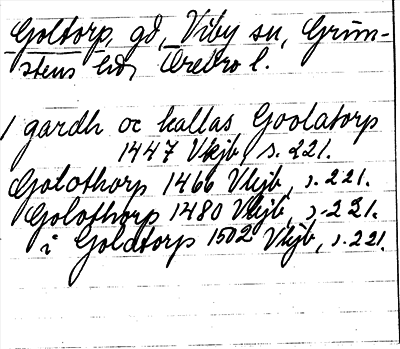 Goltorp, gd, Viby sn, Grim-
stens hd, Örebro l.
1 gardh oc kallas Goolatorp
1447 Vkjb, s. 221.
Golothorp 1466 Vkjb, s. 221.
Golothorp 1480 Vkjb, s. 221.
i Goldtorp 1502 Vkjb, s. 221.